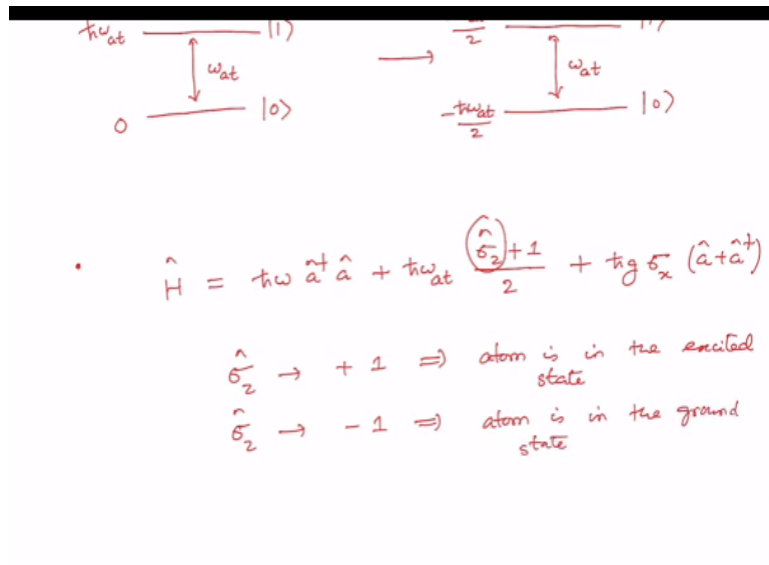 ħω_at |1⟩ 2
ω_at → ω_at
0 |0⟩ -ħω_at/2 |0⟩
• Ĥ = ħω â†â + ħω_at (σ̂_z + 1)/2 + ħg σ_x (â + â†)
σ̂_z → + 1 ⇒ atom is in the excited
state
σ̂_z → - 1 ⇒ atom is in the ground
state